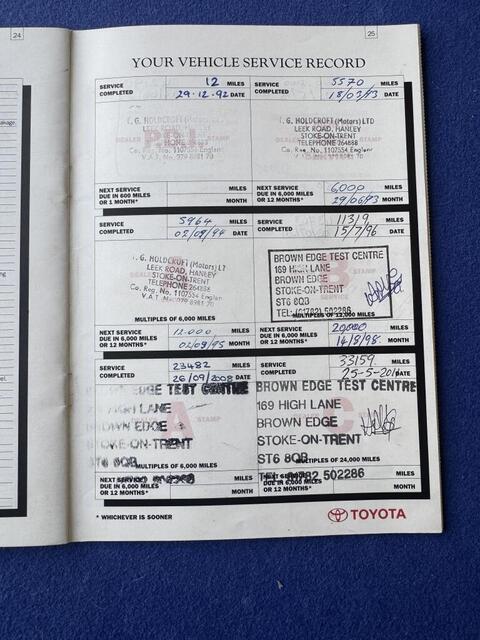 24
25
YOUR VEHICLE SERVICE RECORD
SERVICE COMPLETED 12 MILES
29.12.92 DATE
T. G. HOLDCROFT (Motors) LTD
LEEK ROAD, HANLEY
STOKE-ON-TRENT
TELEPHONE 264888
Co. Reg. No. 1107554 England
P.D.I.
DEALER STAMP
NEXT SERVICE DUE IN 600 MILES OR 1 MONTH* MILES
MONTH
SERVICE COMPLETED 5570 MILES
18/03/93 DATE
T. G. HOLDCROFT (Motors) LTD
LEEK ROAD, HANLEY
STOKE-ON-TRENT
TELEPHONE 264888
Co. Reg. No. 1107554 England
NEXT SERVICE DUE IN 6,000 MILES OR 12 MONTHS* 6,000 MILES
MONTH
SERVICE COMPLETED 5964 MILES
DATE
T. G. HOLDCROFT (Motors) LT
LEEK ROAD, HANLEY
STOKE-ON-TRENT
TELEPHONE 264888
Co. Reg. No. 1107554 England
MULTIPLES OF 6,000 MILES
NEXT SERVICE DUE IN 6,000 MILES OR 12 MONTHS* 12.000 MILES
MONTH
SERVICE COMPLETED 11319 MILES
15/7/96 DATE
BROWN EDGE TEST CENTRE
169 HIGH LANE
BROWN EDGE
STOKE-ON-TRENT
ST6 8QB
TEL: (01782) 502286
B
SERVICE
MULTIPLES OF 12,000 MILES
NEXT SERVICE DUE IN 6,000 MILES OR 12 MONTHS* 20000 MILES
14/8/98 MONTH
SERVICE COMPLETED 23482 MILES
26/09/2008 DATE
EDGE TEST CENTRE
HIGH LANE
BROWN EDGE
STOKE-ON-TRENT
ST6 8QB
A
STAMP
MULTIPLES OF 6,000 MILES
NEXT SERVICE DUE IN 6,000 MILES OR 12 MONTHS* MILES
MONTH
SERVICE COMPLETED 33159 MILES
DATE
BROWN EDGE TEST CENTRE
169 HIGH LANE
BROWN EDGE
STOKE-ON-TRENT
ST6 8QB
TEL 01782 502286
C
MULTIPLES OF 24,000 MILES
NEXT SERVICE DUE IN 6,000 MILES OR 12 MONTHS* MILES
MONTH
* WHICHEVER IS SOONER
TOYOTA